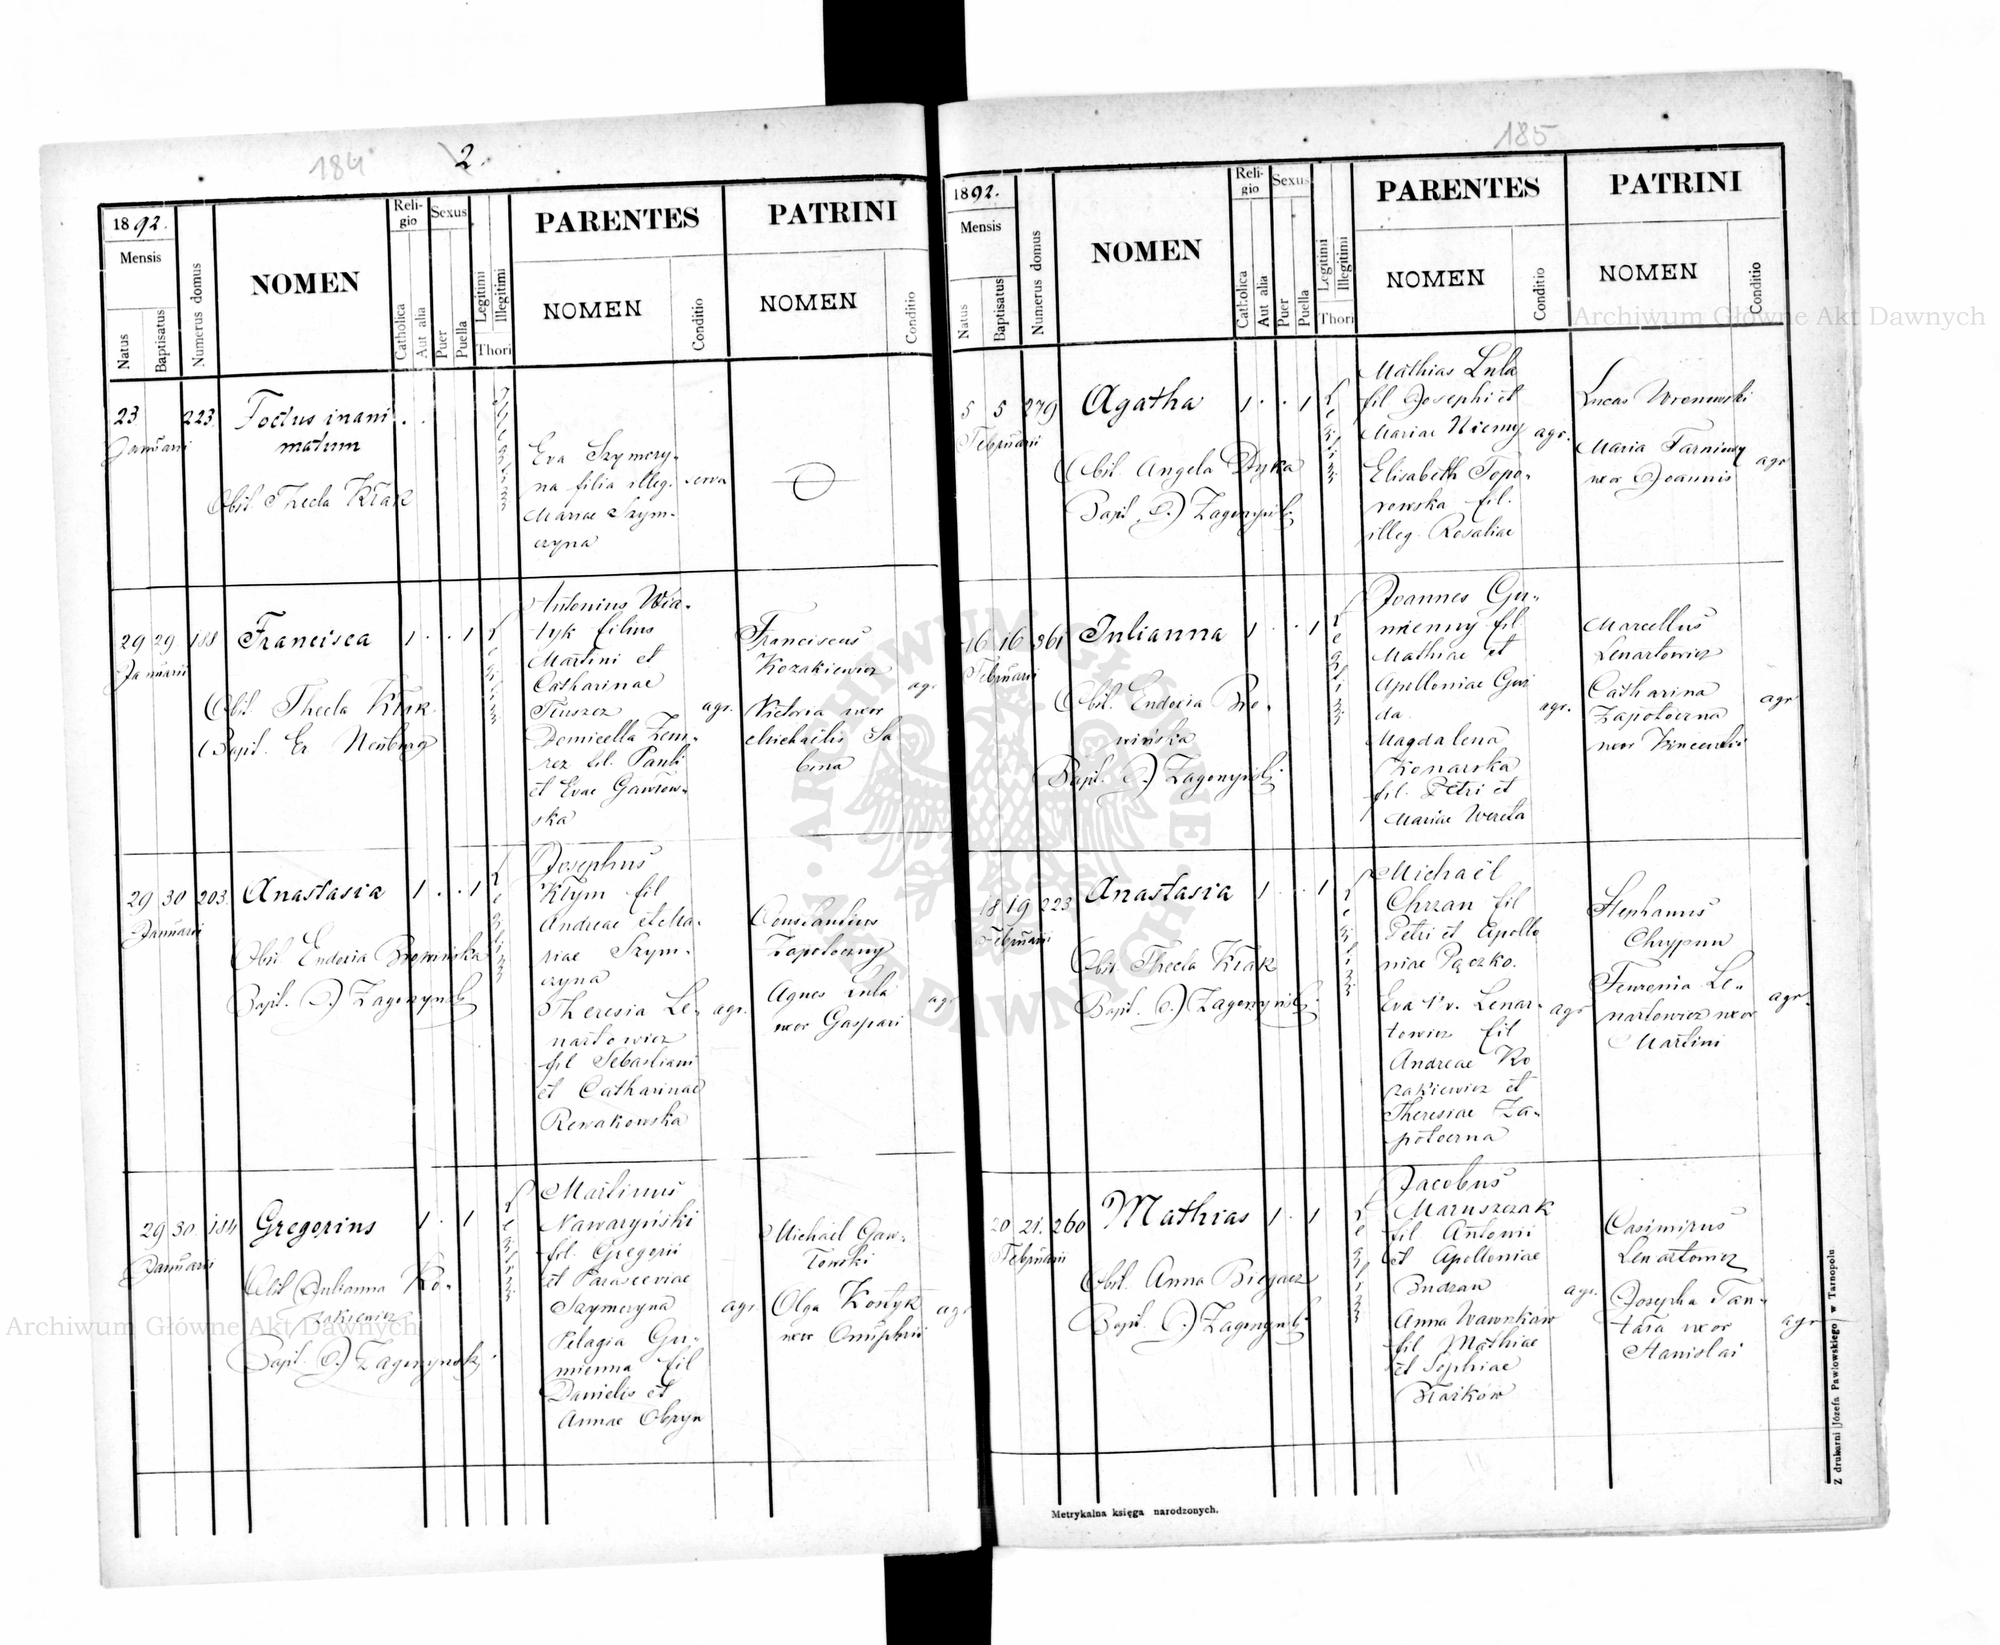 184
2.
1892.
Mensis
Natus
Baptisatus
Numerus domus
NOMEN
Religio
Catholica
Aut alia
Sexus
Puer
Puella
Legitimi
Illegitimi
Thori
PARENTES
NOMEN
Conditio
PATRINI
NOMEN
Conditio
23
Januarii
223.
Foetus inani
matum
Obst. Thecla Kłak
Eva Szymczy-
na filia illeg.
Mariae Szym-
czyna
29 29 188
Januarii
Francisca
1 . . 1
Obst. Thecla Kłak
Bapt. Er.
Antonius
filius
Martini et
Catharinae
Tłuszcz
fil. Pauli
et Evae Gawrow-
ska
agr.
Franciscus
Kozakiewicz
Victoria uxor
Michaëlis Sa-
bina
agr.
29 30 203.
Januarii
Anastasia
1 . . 1
Obst. Eudocia Browińska
Bapt. D.) Zagorzyński
Josephus
Kłym fil
Andreae et Ma-
riae Szym-
czyna
Theresia Le-
nartowicz
fil Sebastiani
et Catharinae
Rewakowska
agr.
Constantius
Zapotoczny
Agnes Lula
uxor Gaspari
agr
29 30 184
Januarii
Gregorius
1 . 1
Obst Julianna Ko-
zakiewicz
Bapt. D.) Zagorzyński
Martinus
Nawaryński
fil. Gregorii
et Parasceviae
Szymczyna
Pelagia Gu-
mienna fil
Danielis et
Annae
agr.
Michaël Gaw-
łowski
Olga Kostyk
uxor Onuphrii
agr
185
1892.
Mensis
Natus
Baptisatus
Numerus domus
NOMEN
Religio
Catholica
Aut alia
Sexus
Puer
Puella
Legitimi
Illegitimi
Thori
PARENTES
NOMEN
Conditio
PATRINI
NOMEN
Conditio
5 5 279
Februarii
Agatha
1 . . 1
Obst. Angela Dyka
Bapt. D.) Zagorzyński
Mathias Lula
fil Josephi et
Mariae Niemy
Elisabeth Topo-
rowska fil.
illeg. Rosaliae
agr.
Lucas Wronowski
Maria
uxor Joannis
agr
16 16 361
Februarii
Julianna
1 . . 1
Obst. Eudocia Bro-
wińska
Bapt. D.) Zagorzyński
Joannes Gu-
mienny fil
Mathiae et
Apolloniae
Magdalena
Konarska
fil. Petri et
Mariae Wereta
agr.
Marcellus
Lenartowicz
Catharina
Zapotoczna
uxor Vincentii
agr
18 19 223
Februarii
Anastasia
1 . . 1
Obst. Thecla Kłak
Bapt. D.) Zagorzyński
Michaël
Chrzan fil
Petri et Apollo
niae Pączko.
Eva 1º v. Lenar-
towicz fil
Andreae Ko
zakiewicz et
Theresiae Za-
potoczna
agr
Stephanus
Chrypun
Le-
nartowicz uxor
Martini
agr.
20 21. 260
Februarii
Mathias
1 . 1
Obst. Anna Biegacz
Bapt. D.) Zagorzyński
Jacobus
Maruszczak
fil Antonii
et Apolloniae
Budzan
Anna Wawrików
fil Mathiae
et Sophiae
agr.
Casimirus
Lenartowicz
Josepha Tan-
tała uxor
Stanislai
agr
Metrykalna księga narodzonych.
Z drukarni Józefa Pawłowskiego w Tarnopolu
Archiwum Główne Akt Dawnych
Archiwum Główne Akt Dawnych
ARCHIWUM GŁÓWNE AKT DAWNYCH